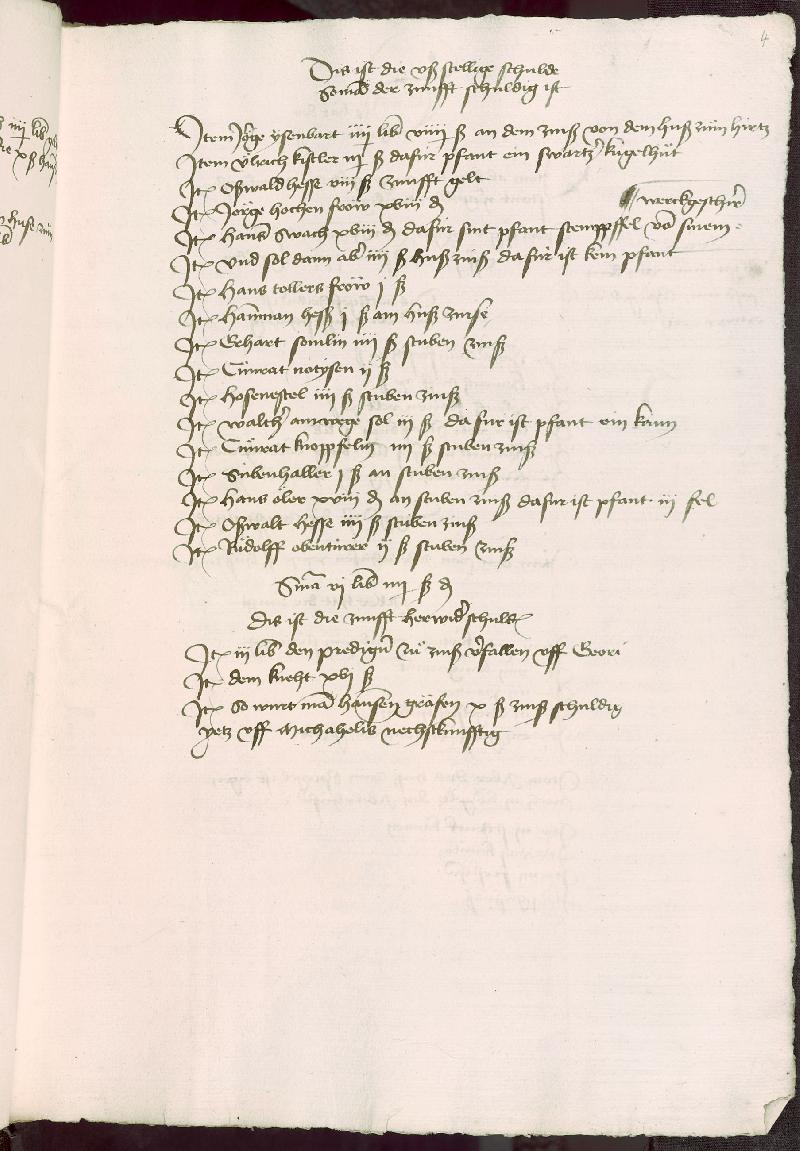 4
Dis ist die vß stellige schulde
So mā der zunfft schuldig ist
Item Jörge ysenbart iiij lib viiij ß an dem zinß von dem huß zům hirtz
Item vlrich kistler iij ß dafür pfant ein swartzer kugelhůt
Itē Oßwald hesse viij ß zunfft gelt
Itē Jörge hochen frow xviij d
werckgeschirr
Itē Hans swach xviij d dafür sint pfant stempffel vō sinem
Itē vnd sol dann aber iiij ß huß zinß dafür ist kein pfant
Itē Hans tollers frow j ß
Itē Hāman heß j ß am huß zinse
Itē Erhart sömlin iiij ß stuben zinß
Itē Cůnrat notysen ij ß
Itē Hosenestel iiij ß stuben zinß
Itē walther sol iij ß dafür ist pfant ein kann
Itē Cůnrat knopffelin iiij ß stuben zinß
Itē Sübenhaller j ß an stuben zinß
Itē Hans öler xviij d an stuben zinß dafür ist pfant iij fel
Itē Oßwalt hesse iiij ß stuben zinß
Itē Růdolff obentürer ij ß stuben zinß
Smā vj lib iiij ß d
Dis ist die zunfft herwider schuldē
Itē iij lib den predigern zů zinß verfallen vff Geori
Itē dem kneht xvj ß
Itē So wurt mā hansen gräfen x ß zinß schuldig
yetz vff Michahelis nechstkunfftig